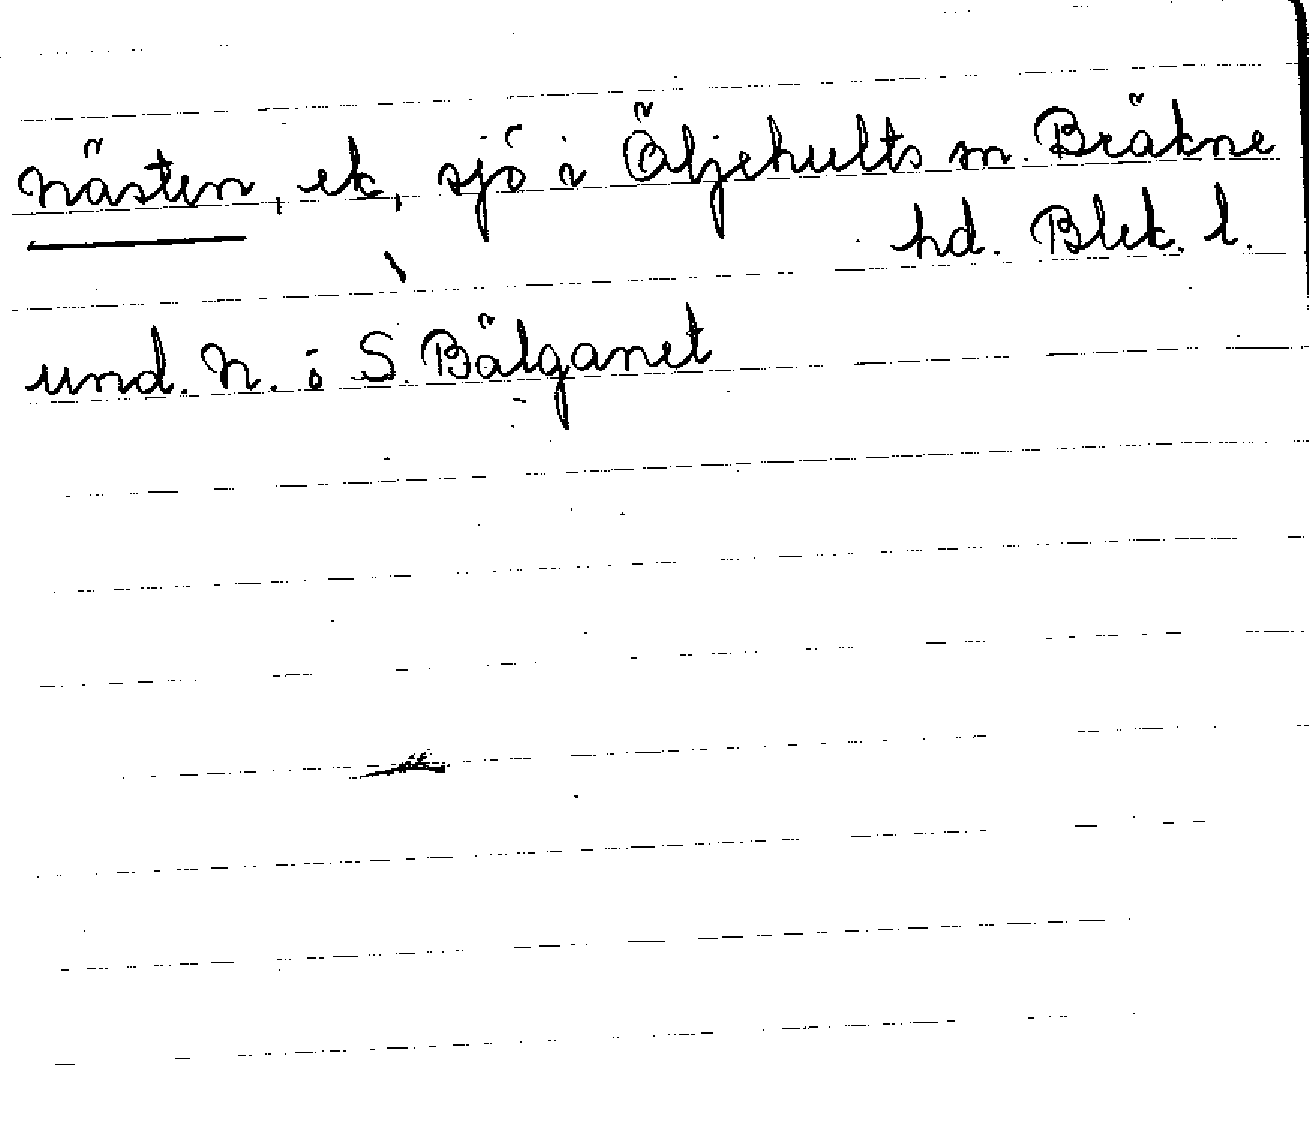 Nästen, ek, sjö i Öljehults sn. Bräkne
hd. Blek. l.
und. N. i S. Bälganet